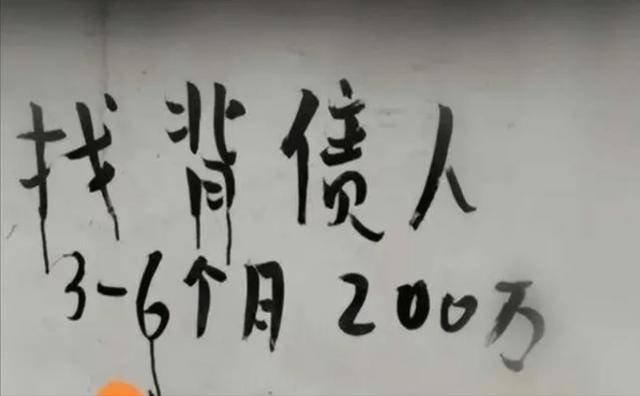 找背债人
3-6个月 200万